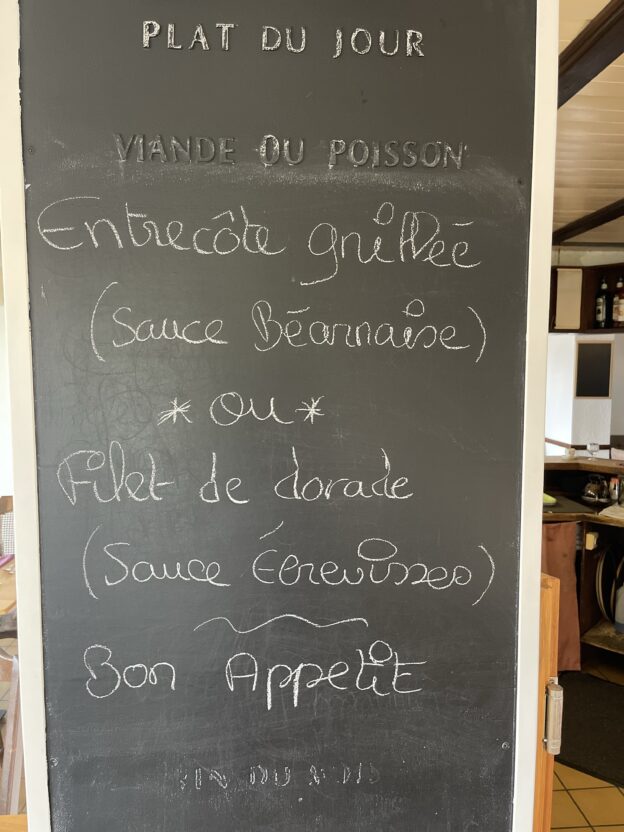 PLAT DU JOUR
VIANDE OU POISSON
Entrecôte grillée
(Sauce Béarnaise)
* OU *
Filet de dorade
(Sauce Écrevisses)
Bon Appetit
VIN DU MOIS